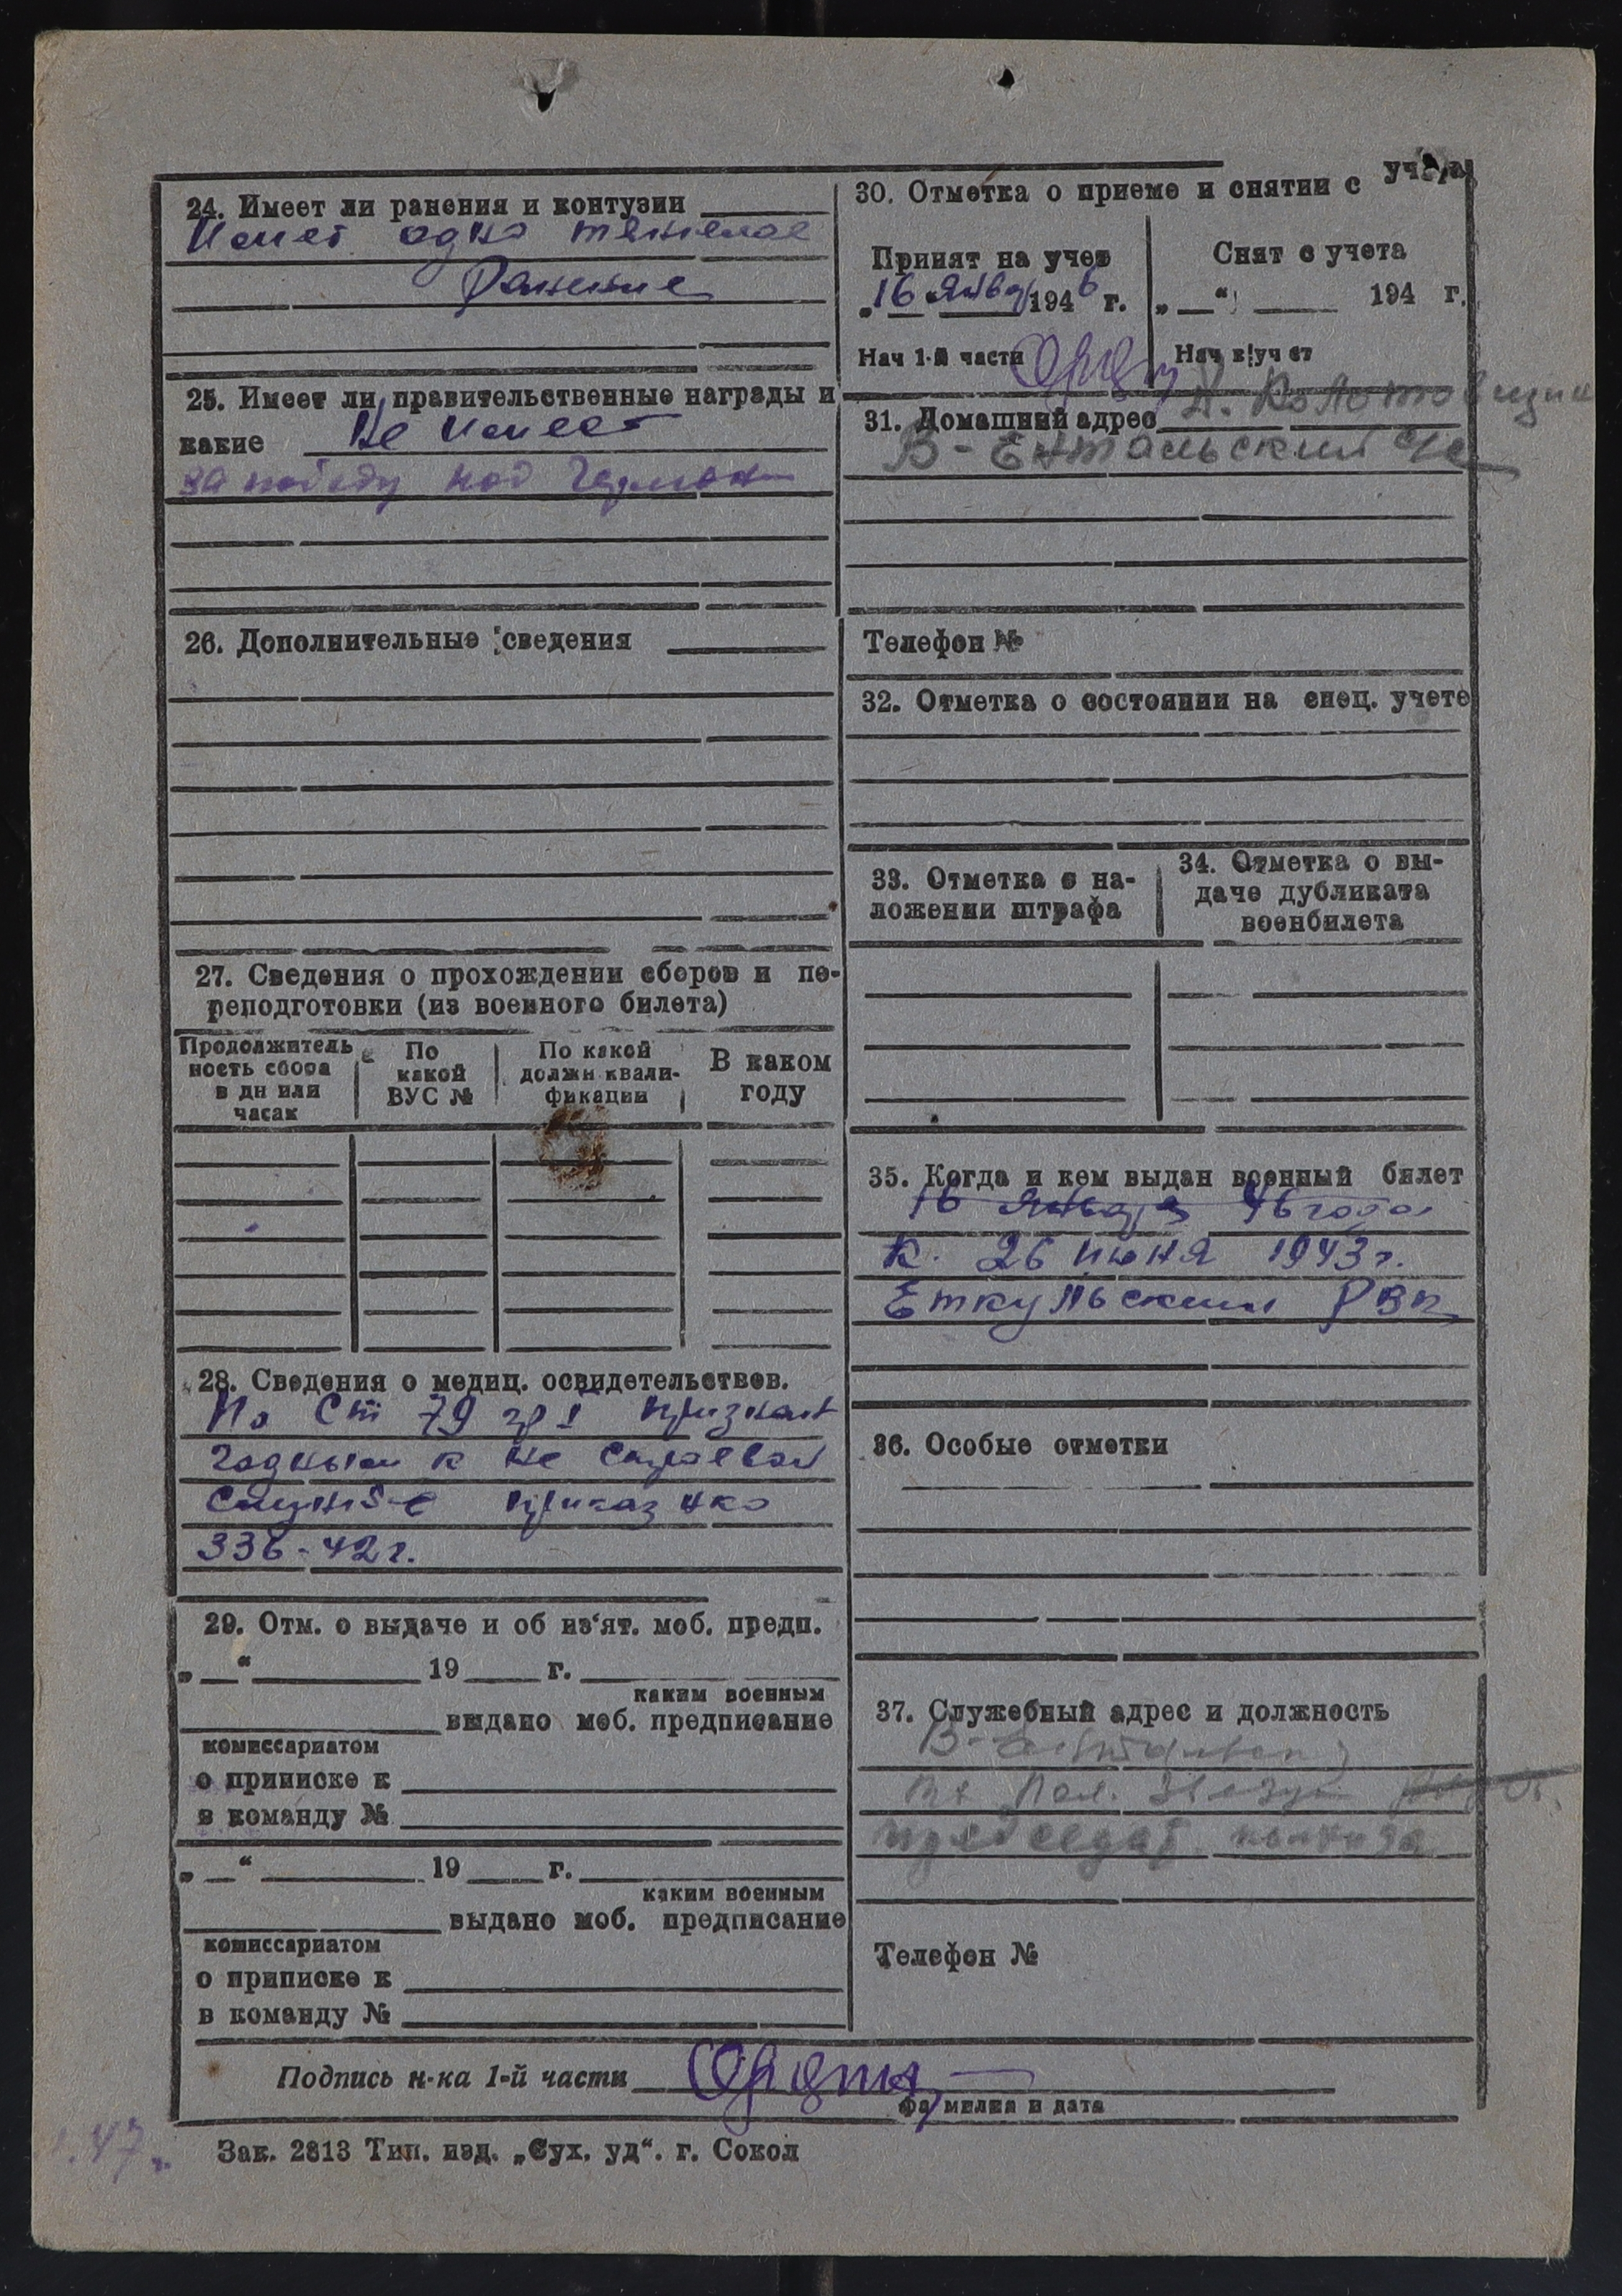 24. Имеет ли ранения и контузии
Имеет одно тяжелое
Ранение
25. Имеет ли правительственные награды и
какие Не имеет
за победу над Германи
26. Дополнительные сведения
27. Сведения о прохождении сборов и пе-
реподготовки (из военного билета)
Продолжитель
ность сбора
в дн или
часах
По
какой
ВУС №
По какой
должн квали-
фикации
В каком
году
28. Сведения о медиц. освидетельствов.
По Ст 79 гр I признан
годным к не строевой
службе приказ НКО
336-42 г.
29. Отм. о выдаче и об из‘ят. моб. предп.
„ “ 19 г.
каким военным
выдано моб. предписание
комиссариатом
о приписке к
в команду №
„ “ 19 г.
каким военным
выдано моб. предписание
комиссариатом
о приписке к
в команду №
30. Отметка о приеме и снятии с учета
Принят на учет
„16 январ 1946 г.
Нач 1-й части
Снят с учета
„ “ 194 г.
Нач в|уч ет
31. Домашний адрес Д.
В-Ентальский
Телефон №
32. Отметка о состоянии на спец. учете
33. Отметка о на-
ложении штрафа
34. Отметка о вы-
даче дубликата
военбилета
35. Когда и кем выдан военный билет
16 января 46 года
К. 26 июня 1943 г.
Еткульским РВК
36. Особые отметки
37. Служебный адрес и должность
председат. колхоза
Телефон №
Подпись н-ка 1-й части
фамилия и дата
47 г.
Зак. 2813 Тип. изд. „Сух. уд“. г. Сокол